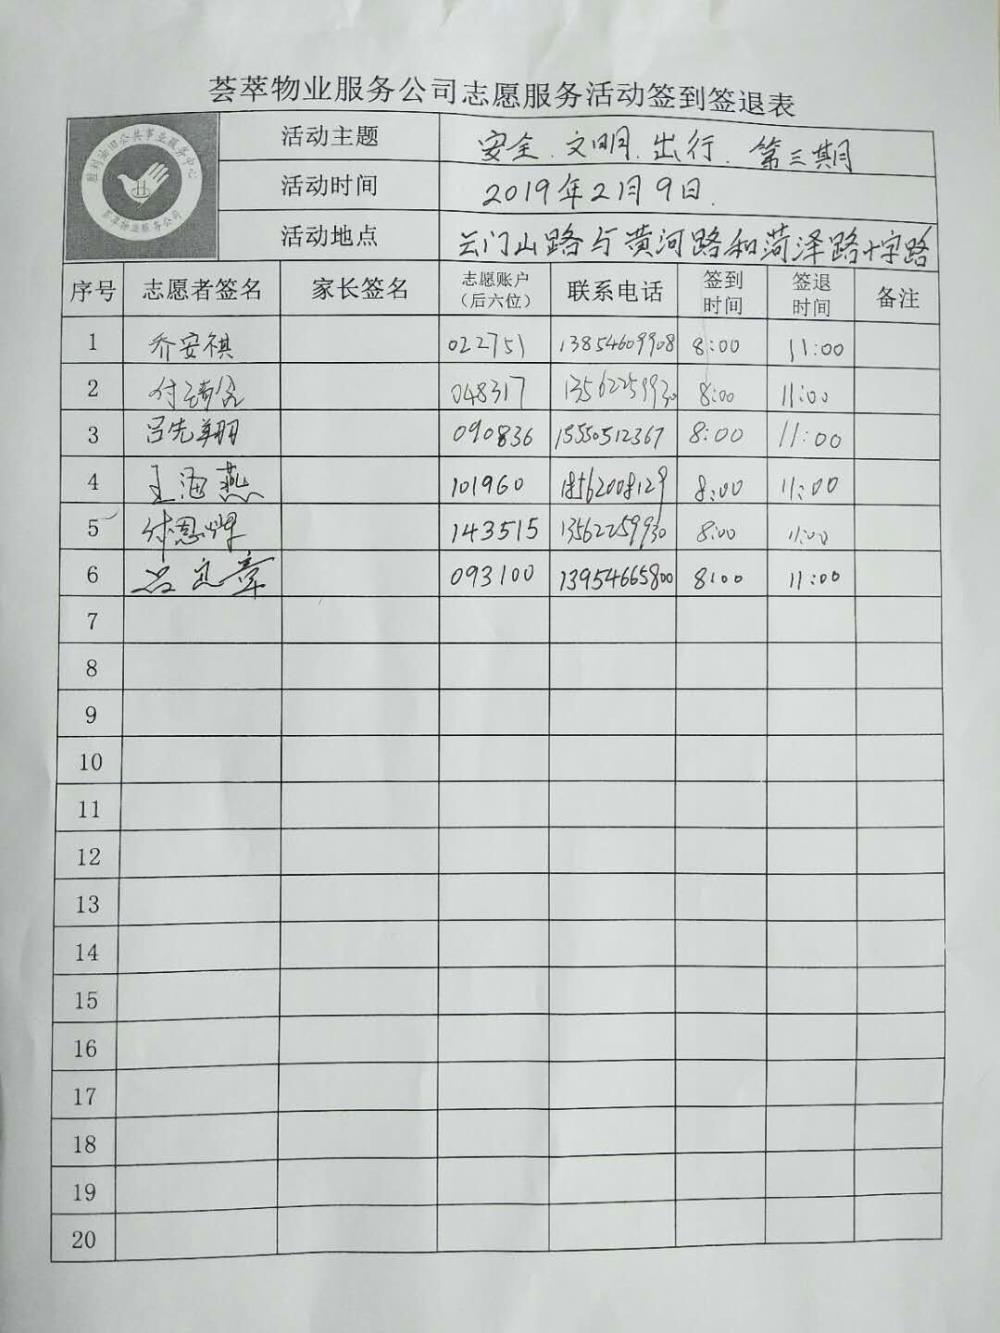 荟萃物业服务公司志愿服务活动签到签退表
胜利油田公共事业服务中心
荟萃物业服务公司
活动主题 安全.文明.出行.第三期
活动时间 2019年2月9日.
活动地点 云门山路与黄河路和菏泽路十字路
序号 志愿者签名 家长签名 志愿账户（后六位） 联系电话 签到时间 签退时间 备注
1 乔安祺 022751 13854609908 8:00 11:00
2 048317 13562259930 8:00 11:00
3 吕先翔 090836 15550512367 8:00 11:00
4 王海燕 101960 18562008129 8:00 11:00
5 143515 13562259930 8:00 11:00
6 093100 13954665800 8:00 11:00
7
8
9
10
11
12
13
14
15
16
17
18
19
20